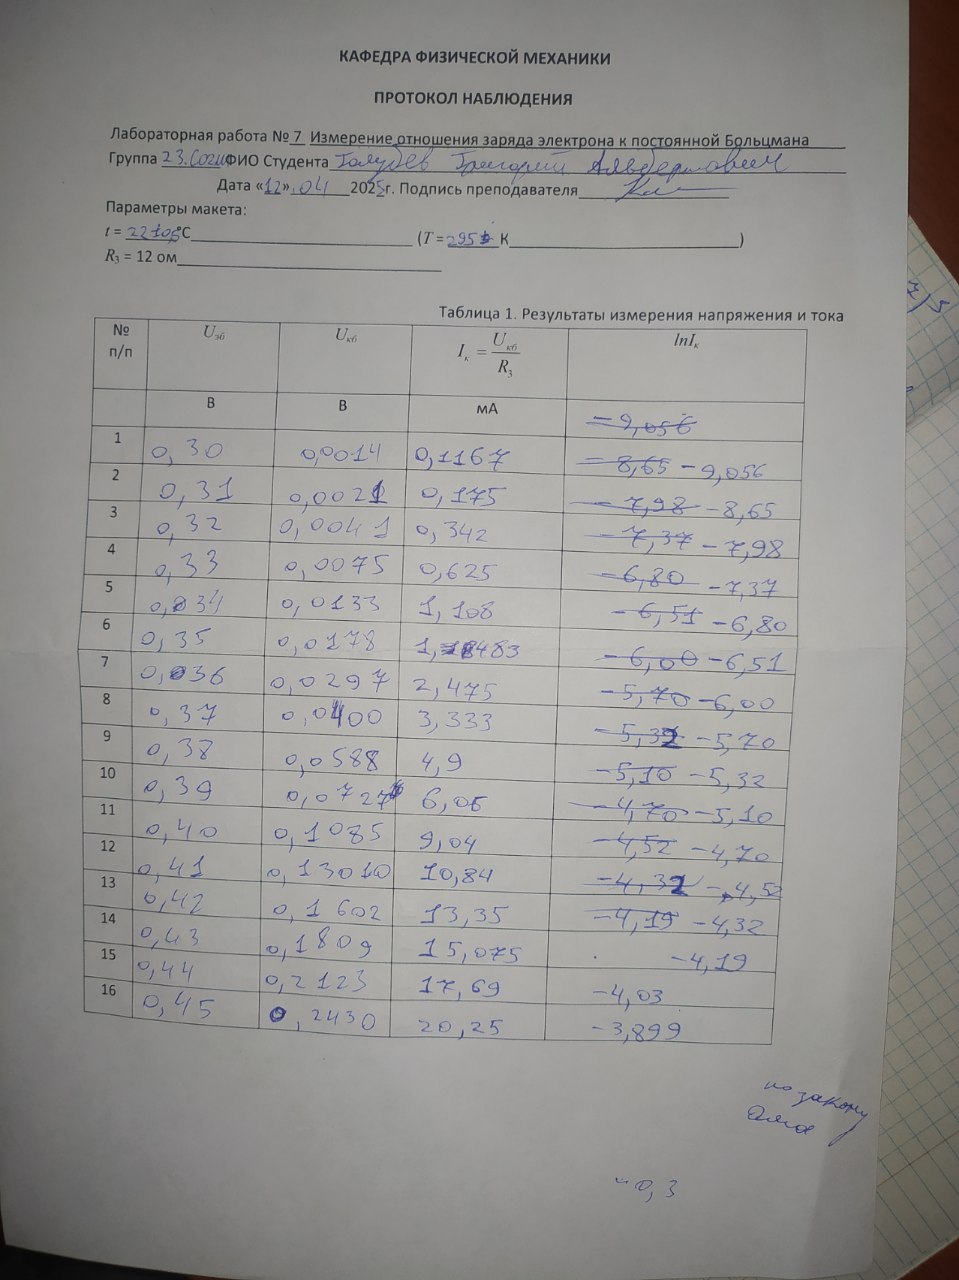 КАФЕДРА ФИЗИЧЕСКОЙ МЕХАНИКИ
ПРОТОКОЛ НАБЛЮДЕНИЯ
Лабораторная работа № 7 Измерение отношения заряда электрона к постоянной Больцмана
Группа 23.Соги ФИО Студента Голубев Григорий Альбертович
Дата «12» 04 2025г. Подпись преподавателя
Параметры макета:
t = °C (T = 295 К )
R₃ = 12 ом
Таблица 1. Результаты измерения напряжения и тока
№ п/п Uэб Uкб Iк = Uкб / R₃ lnIк
В В мА -9,056
1 0,30 0,0014 0,1167 -8,65 -9,056
2 0,31 0,0021 0,175 -7,98 -8,65
3 0,32 0,0041 0,342 -7,37 -7,98
4 0,33 0,0075 0,625 -6,80 -7,37
5 0,34 0,0133 1,108 -6,51 -6,80
6 0,35 0,0178 1,483 -6,00 -6,51
7 0,36 0,0297 2,475 -5,70 -6,00
8 0,37 0,0400 3,333 -5,32 -5,70
9 0,38 0,0588 4,9 -5,10 -5,32
10 0,39 0,0727 6,06 -4,70 -5,10
11 0,40 0,1085 9,04 -4,52 -4,70
12 0,41 0,13010 10,84 -4,32 -4,52
13 0,42 0,1602 13,35 -4,19 -4,32
14 0,43 0,1809 15,075 -4,19
15 0,44 0,2123 17,69 -4,03
16 0,45 0,2430 20,25 -3,899
по закону
Ома
0,3